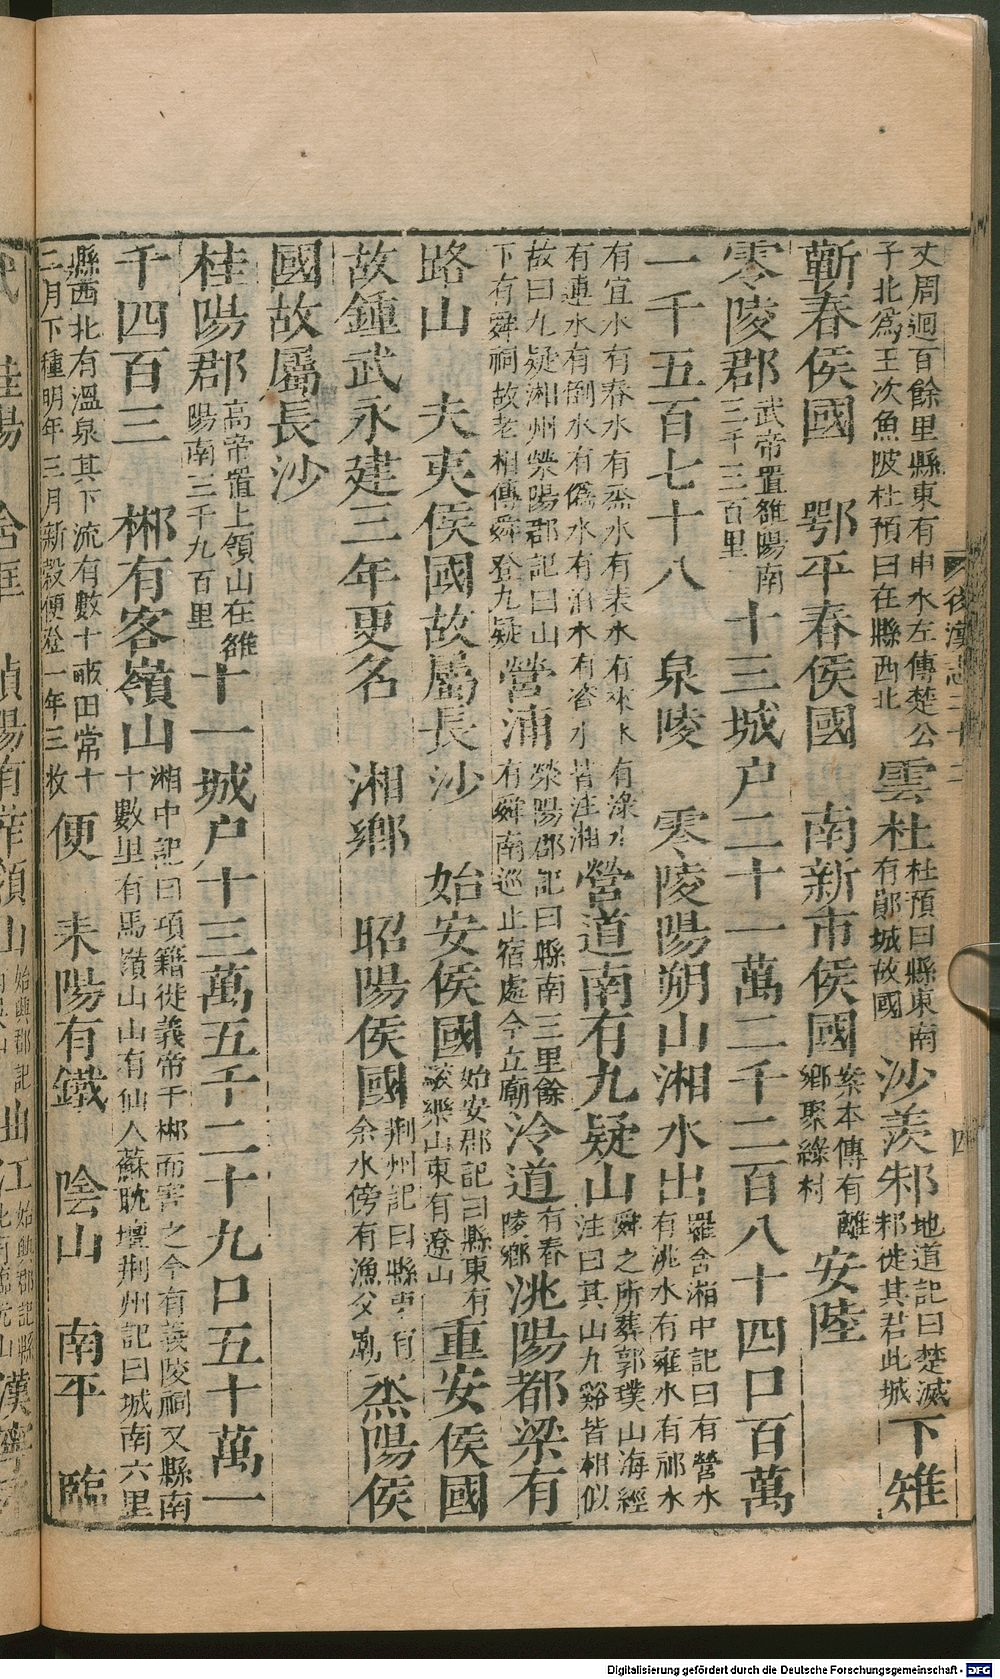 丈周迴百餘里縣東有申水左傳楚公
子北爲王次魚陂杜預曰在縣西北
雲杜
杜預曰縣東南
有鄖城故國
沙羡邾
地道記曰楚滅
邾徙其君此城
下雉
蘄春侯國　鄂平春侯國　南新市侯國
案本傳有離
鄉聚綠村
安陸
零陵郡
武帝置雒陽南
三千三百里
十三城户二十一萬二千二百八十四口百萬
一千五百七十八　泉陵　零陵陽朔山湘水出
羅含湘中記曰有營水
有洮水有雍水有祁水
有宜水有舂水有烝水有耒水有
有淥水
有連水有倒水有僞水有汨水有資水皆注湘
營道南有九疑山
舜之所葬郭璞山海經
注曰其山九谿皆相似
故曰九疑湘州滎陽郡記曰山
下有舜祠故老相傳舜登九疑
營浦
滎陽郡記曰縣南三里餘
有舜南巡止宿處今立廟
泠道
有舂
陵鄉
洮陽都梁有
路山　夫夷侯國故屬長沙　始安侯國
始安郡記曰縣東有
山東有遼山
重安侯國
故鍾武永建三年更名　湘鄉　昭陽侯國
荆州記曰縣東有
余水傍有漁父廟
烝陽侯
國故屬長沙
桂陽郡
高帝置上領山在雒
陽南三千九百里
十一城户十三萬五千二十九口五十萬一
千四百三　郴有客嶺山
湘中記曰項籍徙義帝于郴而害之今有義陵祠又縣南
十數里有馬嶺山山有仙人蘇耽壇荆州記曰城南六里
縣西北有溫泉其下流有數十畝田常十
二月下種明年三月新穀便登一年三收
便　耒陽有鐵　陰山　南平　臨
後漢志二十二
四
桂陽
含洭
湞陽有
領山
始興郡記
曲江
始興郡記縣
北有臨沅山
漢寧
Digitalisierung gefördert durch die Deutsche Forschungsgemeinschaft - DFG